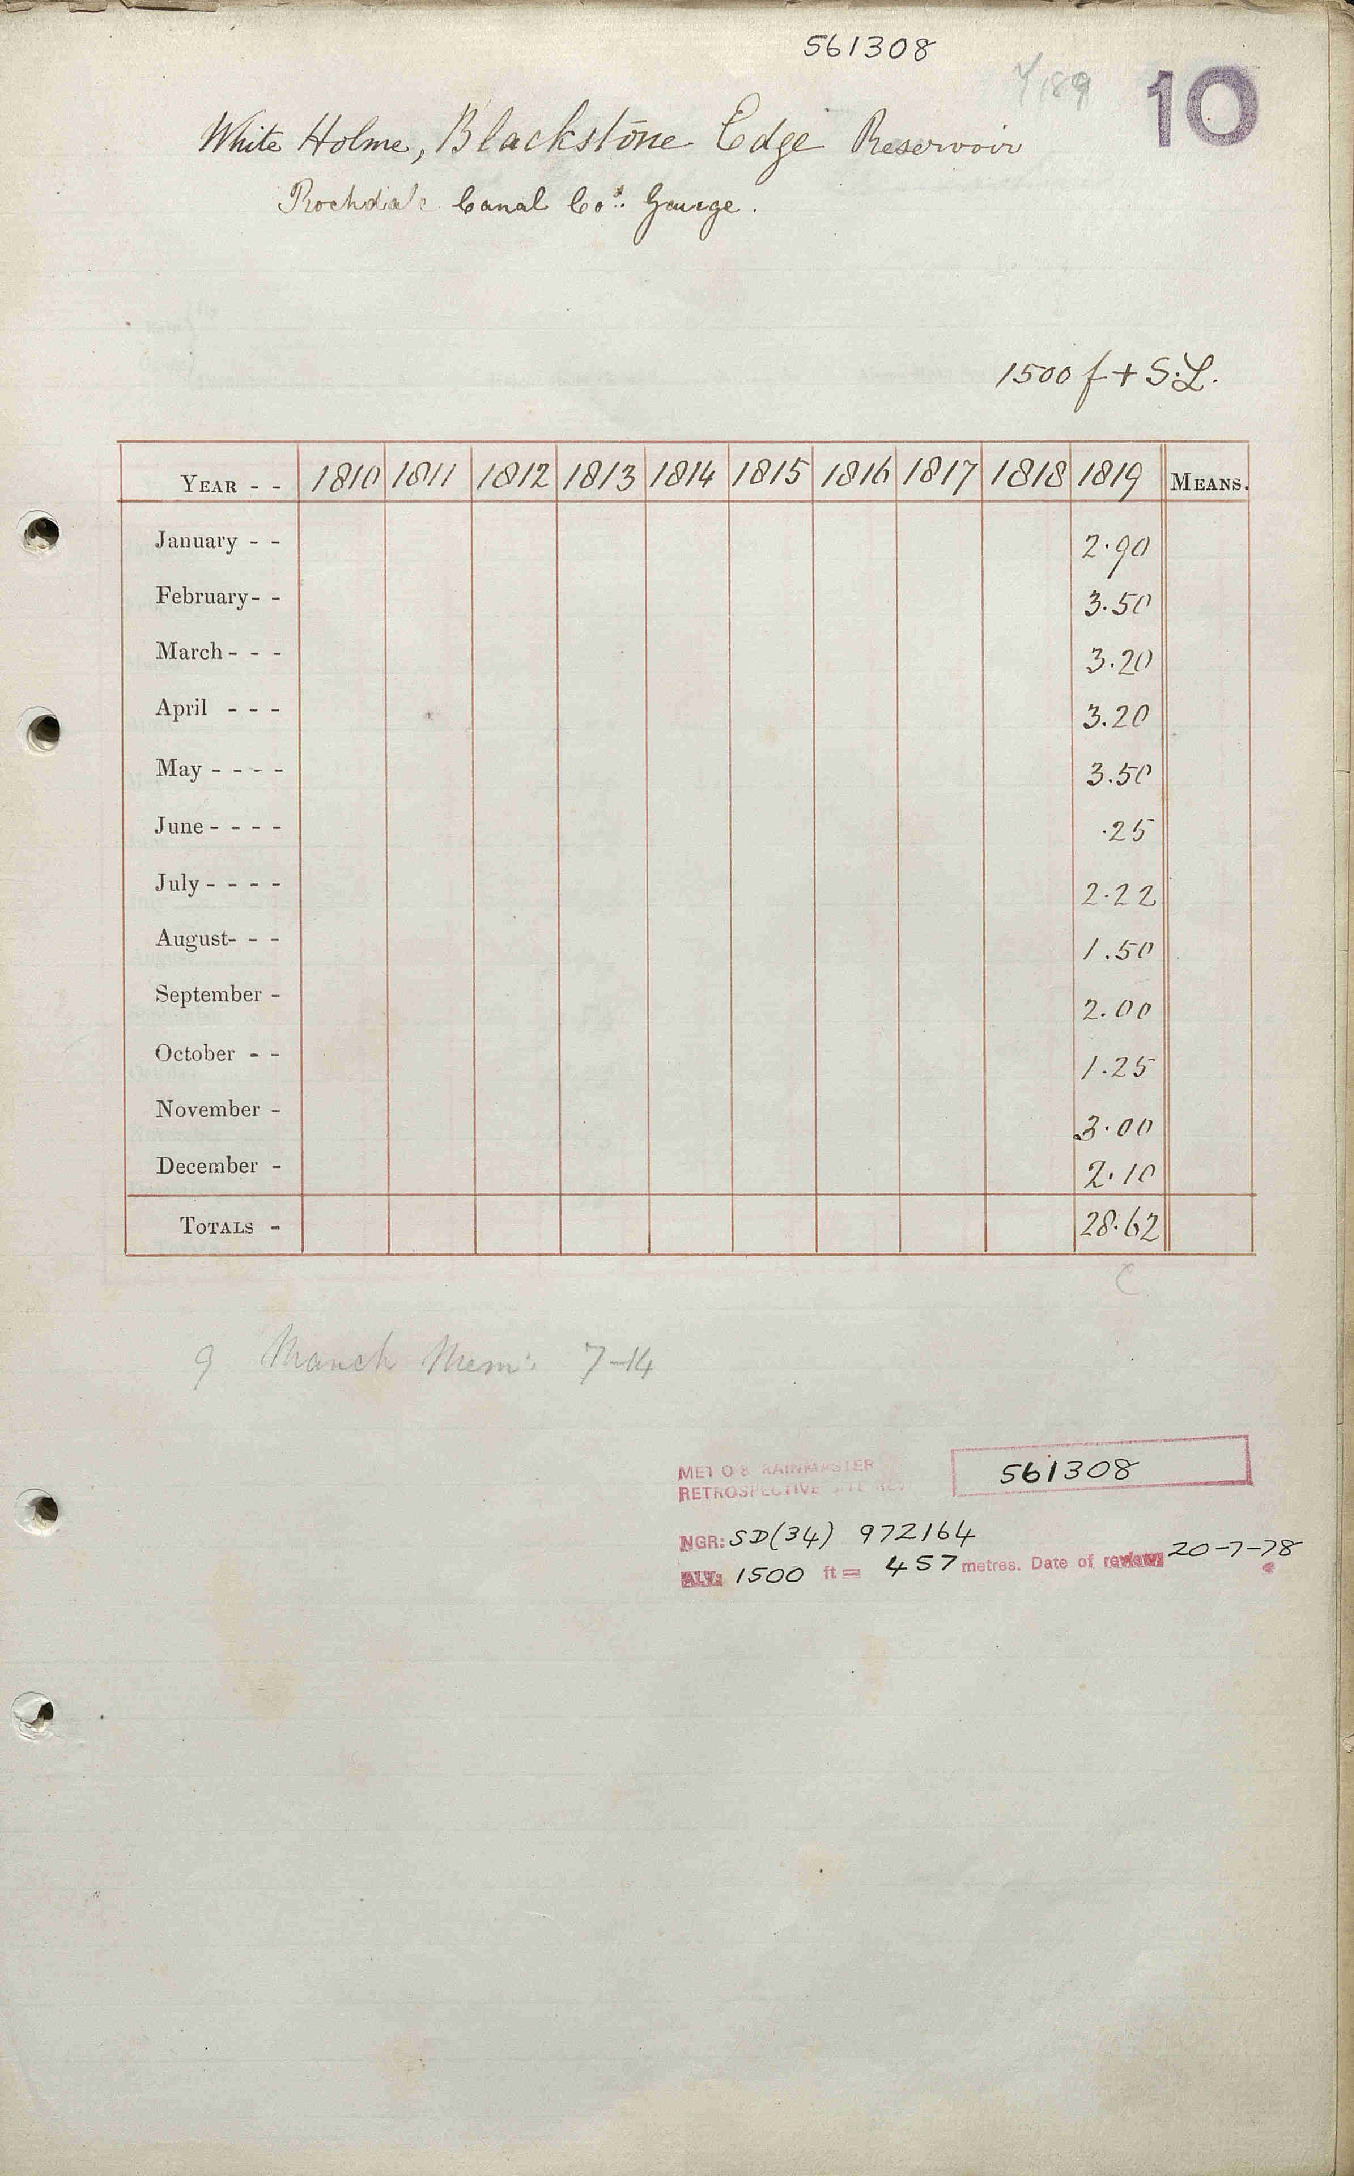 561308
10
White Holme, Blackstone Edge Reservoir
Rochdale Canal Cos. Gauge.
1500 f + S.L.
YEAR - - 1810 1811 1812 1813 1814 1815 1816 1817 1818 1819 MEANS.
January - - 2.90
February - - 3.50
March - - - 3.20
April - - - 3.20
May - - - - 3.50
June - - - - .25
July - - - - 2.22
August - - - 1.50
September - 2.00
October - - 1.25
November - 3.00
December - 2.10
TOTALS - 28.62
C
9 Manch Mem. 7-14
MET O 8 RAINMASTER
RETROSPECTIVE SITE
561308
NGR: SD(34) 972164
ALT: 1500 ft = 457 metres. Date of review 20-7-78